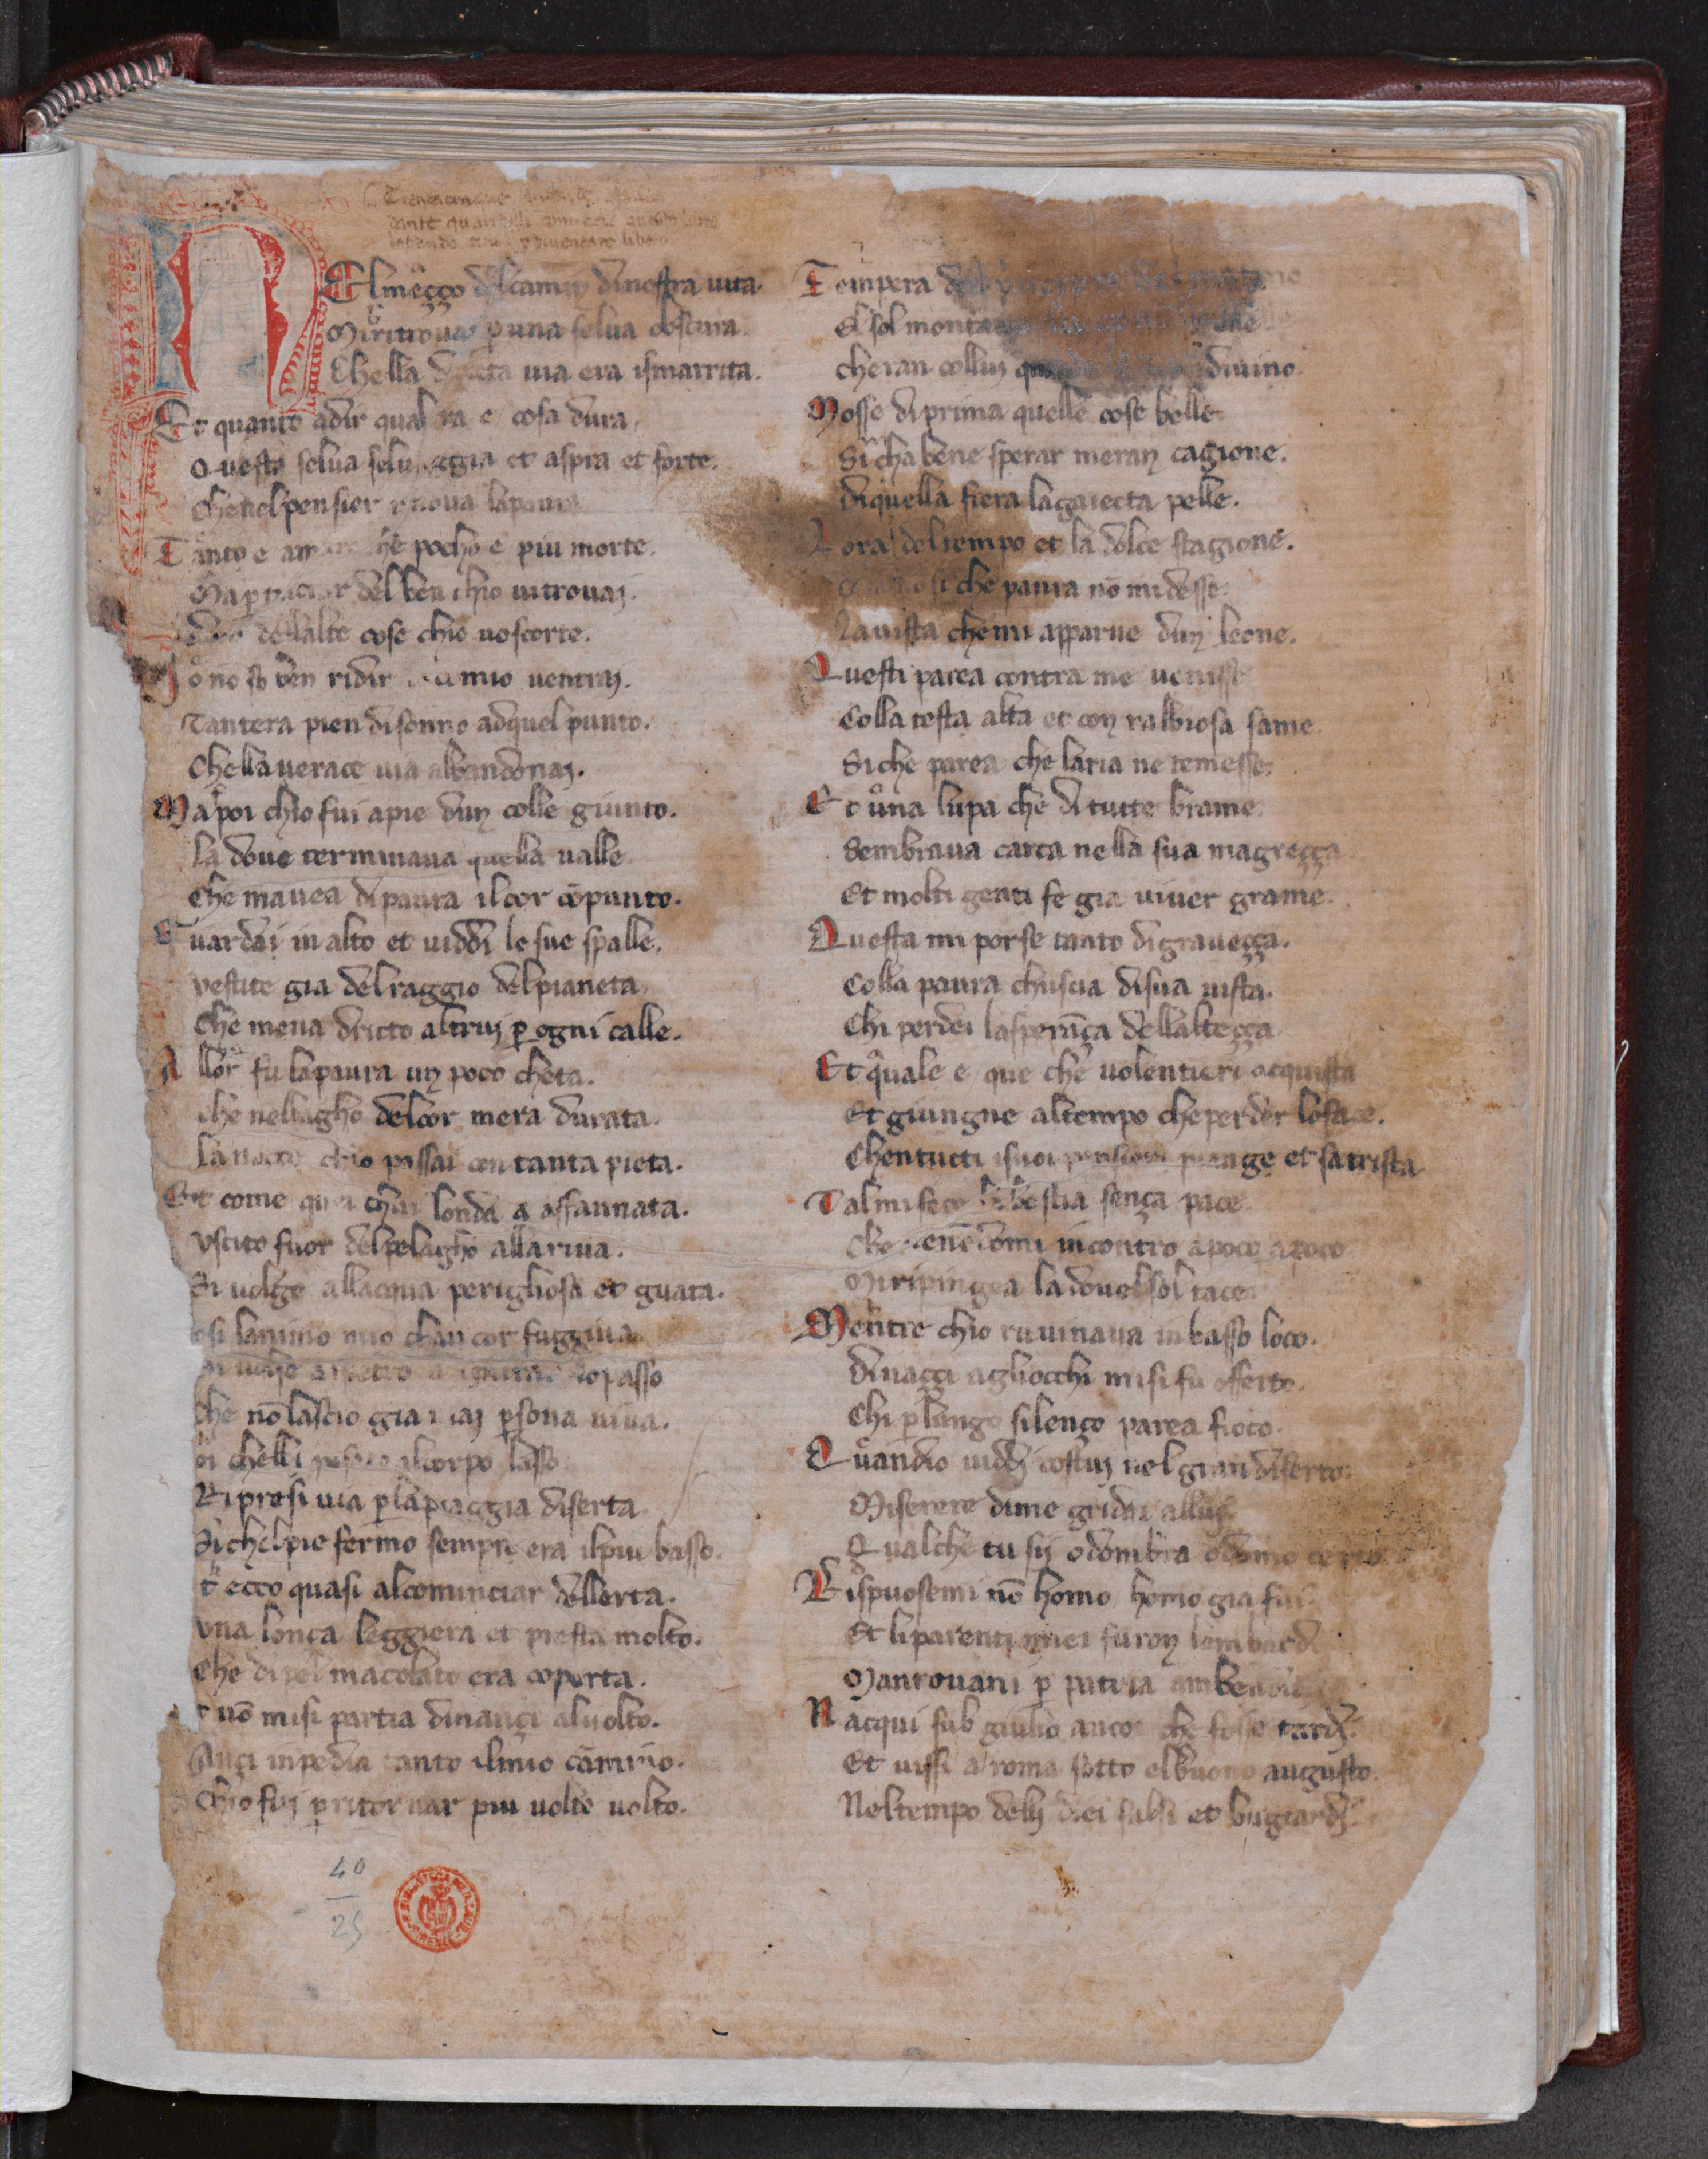 dante
NElmeçço del camin di nostra uita
Mi ritrouai p una selua obscura
Chella uia era ismarrita.
Et quanto adir qual era e cosa dura.
Questa selua seluaggia et aspra et forte.
Chenelpensier rinoua lapaura
Tanto e amara che pocho e piu morte.
Ma p tractar del ben chio uitrouai.
dellalte cose chio uoscorte.
Io no so ben ridir mio uentrai.
Tantera pien disonno adquel punto.
Chella uerace uia abandonai.
Ma poi chio fui apie dun colle giunto.
la doue terminaua quella ualle
Che mauea dipaura ilcor cōpunto.
Guardai in alto et uiddi le sue spalle.
vestite gia delraggio delpianeta.
Che mena dricto altrui p ogni calle.
Allor fu lapaura un poco cheta.
che nellagho delcor mera durata.
la nocte chio passai con tanta pieta.
Et come quei chai londa a affannata.
vscito fuor delpelagho allariua.
Si uolge allacqua perigliosa et guata.
osi lanimo mio chancor fuggiua
si uolse arietro a lopasso
che nō lascio gia mai psona uiua.
oi chelli alcorpo lasso
Ripresi uia p lapiaggia diserta
Sichelpie fermo sempre era ilpiu basso.
t ecco quasi alcominciar dellerta.
vna lonça leggiera et presta molto.
Che dipel macolato era coperta.
t nō misi partia dinançi aluolto.
Ançi inpedia tanto ilmio cāmino.
Chio fui p ritornar piu uolte uolto.
Tempera
El sol
cheran collui diuino.
Mosse diprima quelle cose belle
Sicha bene sperar meran cagione.
diquella fiera lagaiecta pelle.
Lora deltempo et la dolce stagione.
si che paura nō midesse.
La uista chemi apparue dun leone.
Questi parea contra me uenisse
Colla testa alta et con rabbiosa fame.
Siche parea che laria ne temesse.
Et una lupa che di tutte brame
Sembraua carca nella sua magreçça
Et molti genti fe gia uiuer grame.
Questa mi porse tanto digraueçça.
Colla paura chuscia disua uista.
Chi perdei lasperāça dellalteçça
Et quale e que che uolentieri acquista
Et giungne altempo cheperder loface.
Chentucti isuoi pensieri piange et sattrista
Talmifece la bestia sença pace
Che uenēdomi incontro apoco apoco
Miripingea la douelsol tace.
Mentre chio ruuinaua in basso loco.
Dinaçci agliocchi misifu offerto.
Chi p lungo silenço parea fioco.
Quandio uiddi costui nel gran diserto.
Miserere dime gridai allui.
Qualche tu sij odombra odomo certo
Rispuosemi nō homo homo gia fui
Et liparenti miei furon lombardi
Mantouani p patria
Nacqui sub giulio ancor che fosse tardi.
Et uissi a roma sotto elbuono augusto.
Neltempo delli dei falsi et bugiardi.
40
25